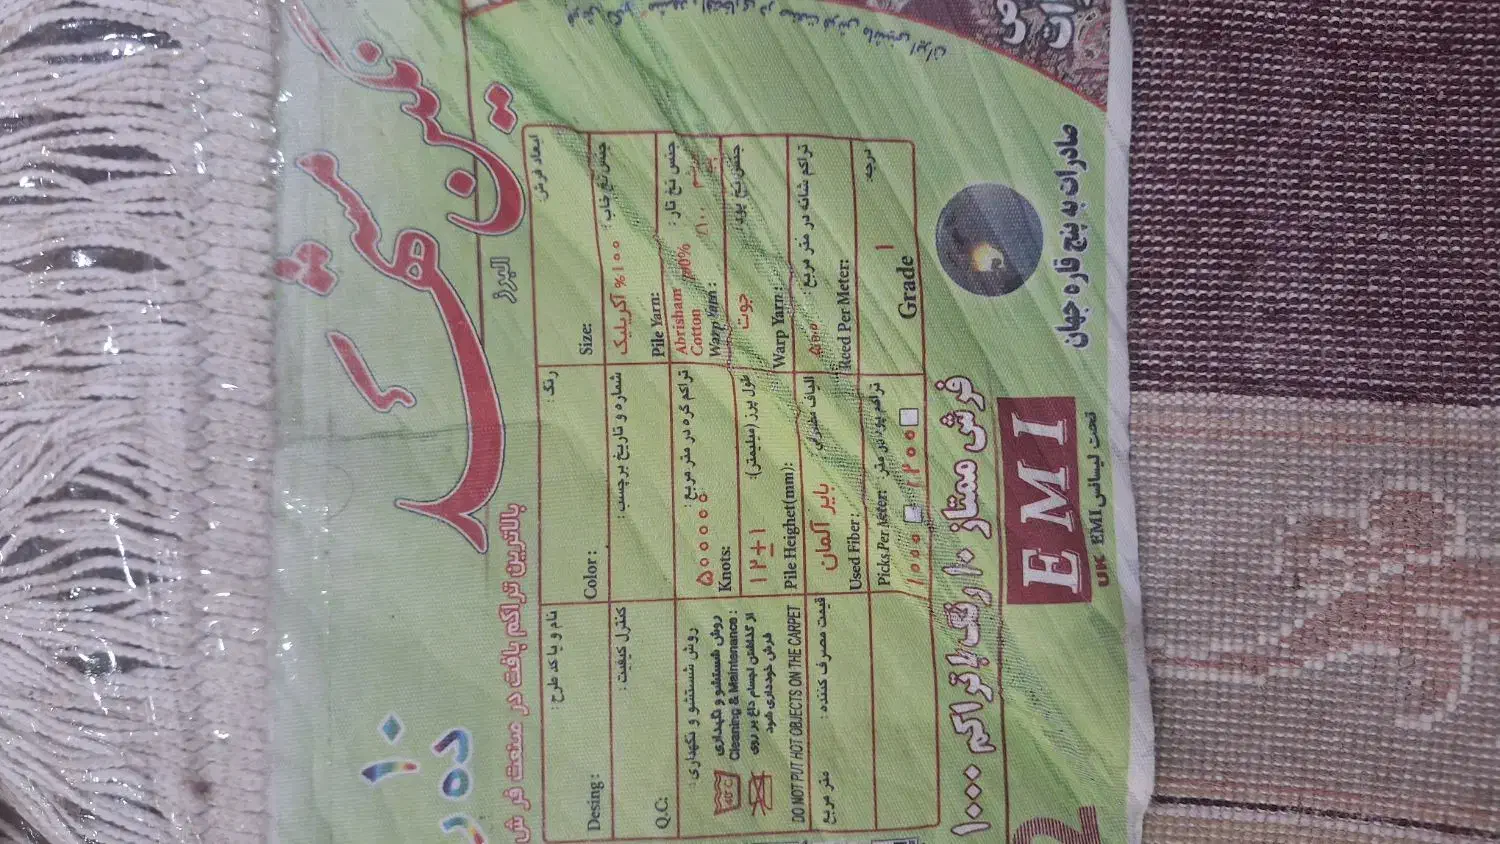 نگین مشهد
البرز
۱۰
ده
بالاترین تراکم بافت در صنعت فرش
ابعاد فرش
Size:
رنگ :
Color:
نام و یا کد طرح :
Desing:
جنس نخ خاب :
%۱۰۰ آکریلیک
Pile Yarn:
شماره و تاریخ برچسب :
کنترل کیفیت :
Q.C:
جنس نخ تار :
Abrisham
Cotton
Warp Yarn:
تراکم گره در متر مربع :
۵۰۰۰۰۰۰
Knots:
روش شستشو و نگهداری :
جنس نخ پود:
جوت
Warp Yarn:
طول پرز (میلیمتر):
۱۲±۱
Pile Heighet(mm):
روش شستشو و نگهداری
Cleaning & Maintenance:
از گذاشتن اجسام داغ بر روی
فرش خودداری شود
DO NOT PUT HOT OBJECTS ON THE CARPET
تراکم شانه در متر مربع :
Reed Per Meter:
الیاف مصرفی:
بایر آلمان
Used Fiber:
قیمت مصرف کننده :
متر مربع
درجه:
Grade 1
تراکم پود در متر
Picks Per Meter:
۱۰۰۰
فرش ممتاز ۱۰ رنگ با تراکم ۱۰۰۰
صادرات به پنج قاره جهان
EMI
تحت لیسانس EMI
UK